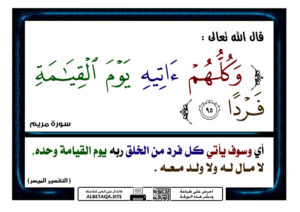 قال الله تعالى :
﴿ وَكُلُّهُمْ ءَاتِيهِ يَوْمَ ٱلْقِيَـٰمَةِ
فَرْدًا ٩٥ ﴾
سورة مريم
أي وسوف يأتي كل فرد من الخلق ربه يوم القيامة وحده،
لا مال له ولا ولد معه .
(التفسير الميسر)
ALBETAQA.SITE